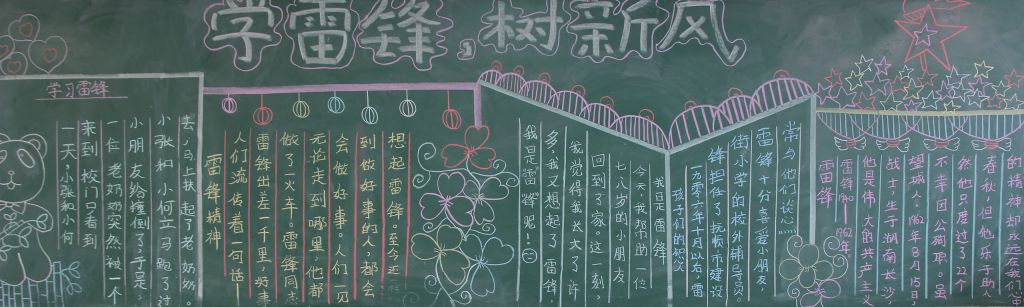 学雷锋,树新风
学习雷锋
一天,小张和小何
来到校门只看到
一位老奶奶突然被一个
小朋友给撞倒了,于是,
小张和小何立马跑了过
去,马上扶起了老奶奶。
雷锋精神
人们流传着一句话:
雷锋出差一千里,好事
做了一火车。雷锋同志
无论走到哪里,他都
会做好事。人们一见
到做好事的人,都会
想起雷锋。至今还
我是雷锋
今天我帮助一位
七八岁的小朋友
回到了家。这一刻,
我觉得我长大了许
多,我又想起了雷锋,
我是雷锋呢!
孩子们的知心
一九六〇年十月以后,雷
锋担任了抚顺市建设
街小学的校外辅导员。
雷锋十分喜爱小朋友,
常与他们谈心
雷锋
雷锋1940—1962年,
他是伟大的共产主义
战士。生于湖南长沙,
望城人。1962年8月15日,
不幸因公殉职。虽
然他只度过了22个
春秋,但他乐于助
的精神却永远在我们